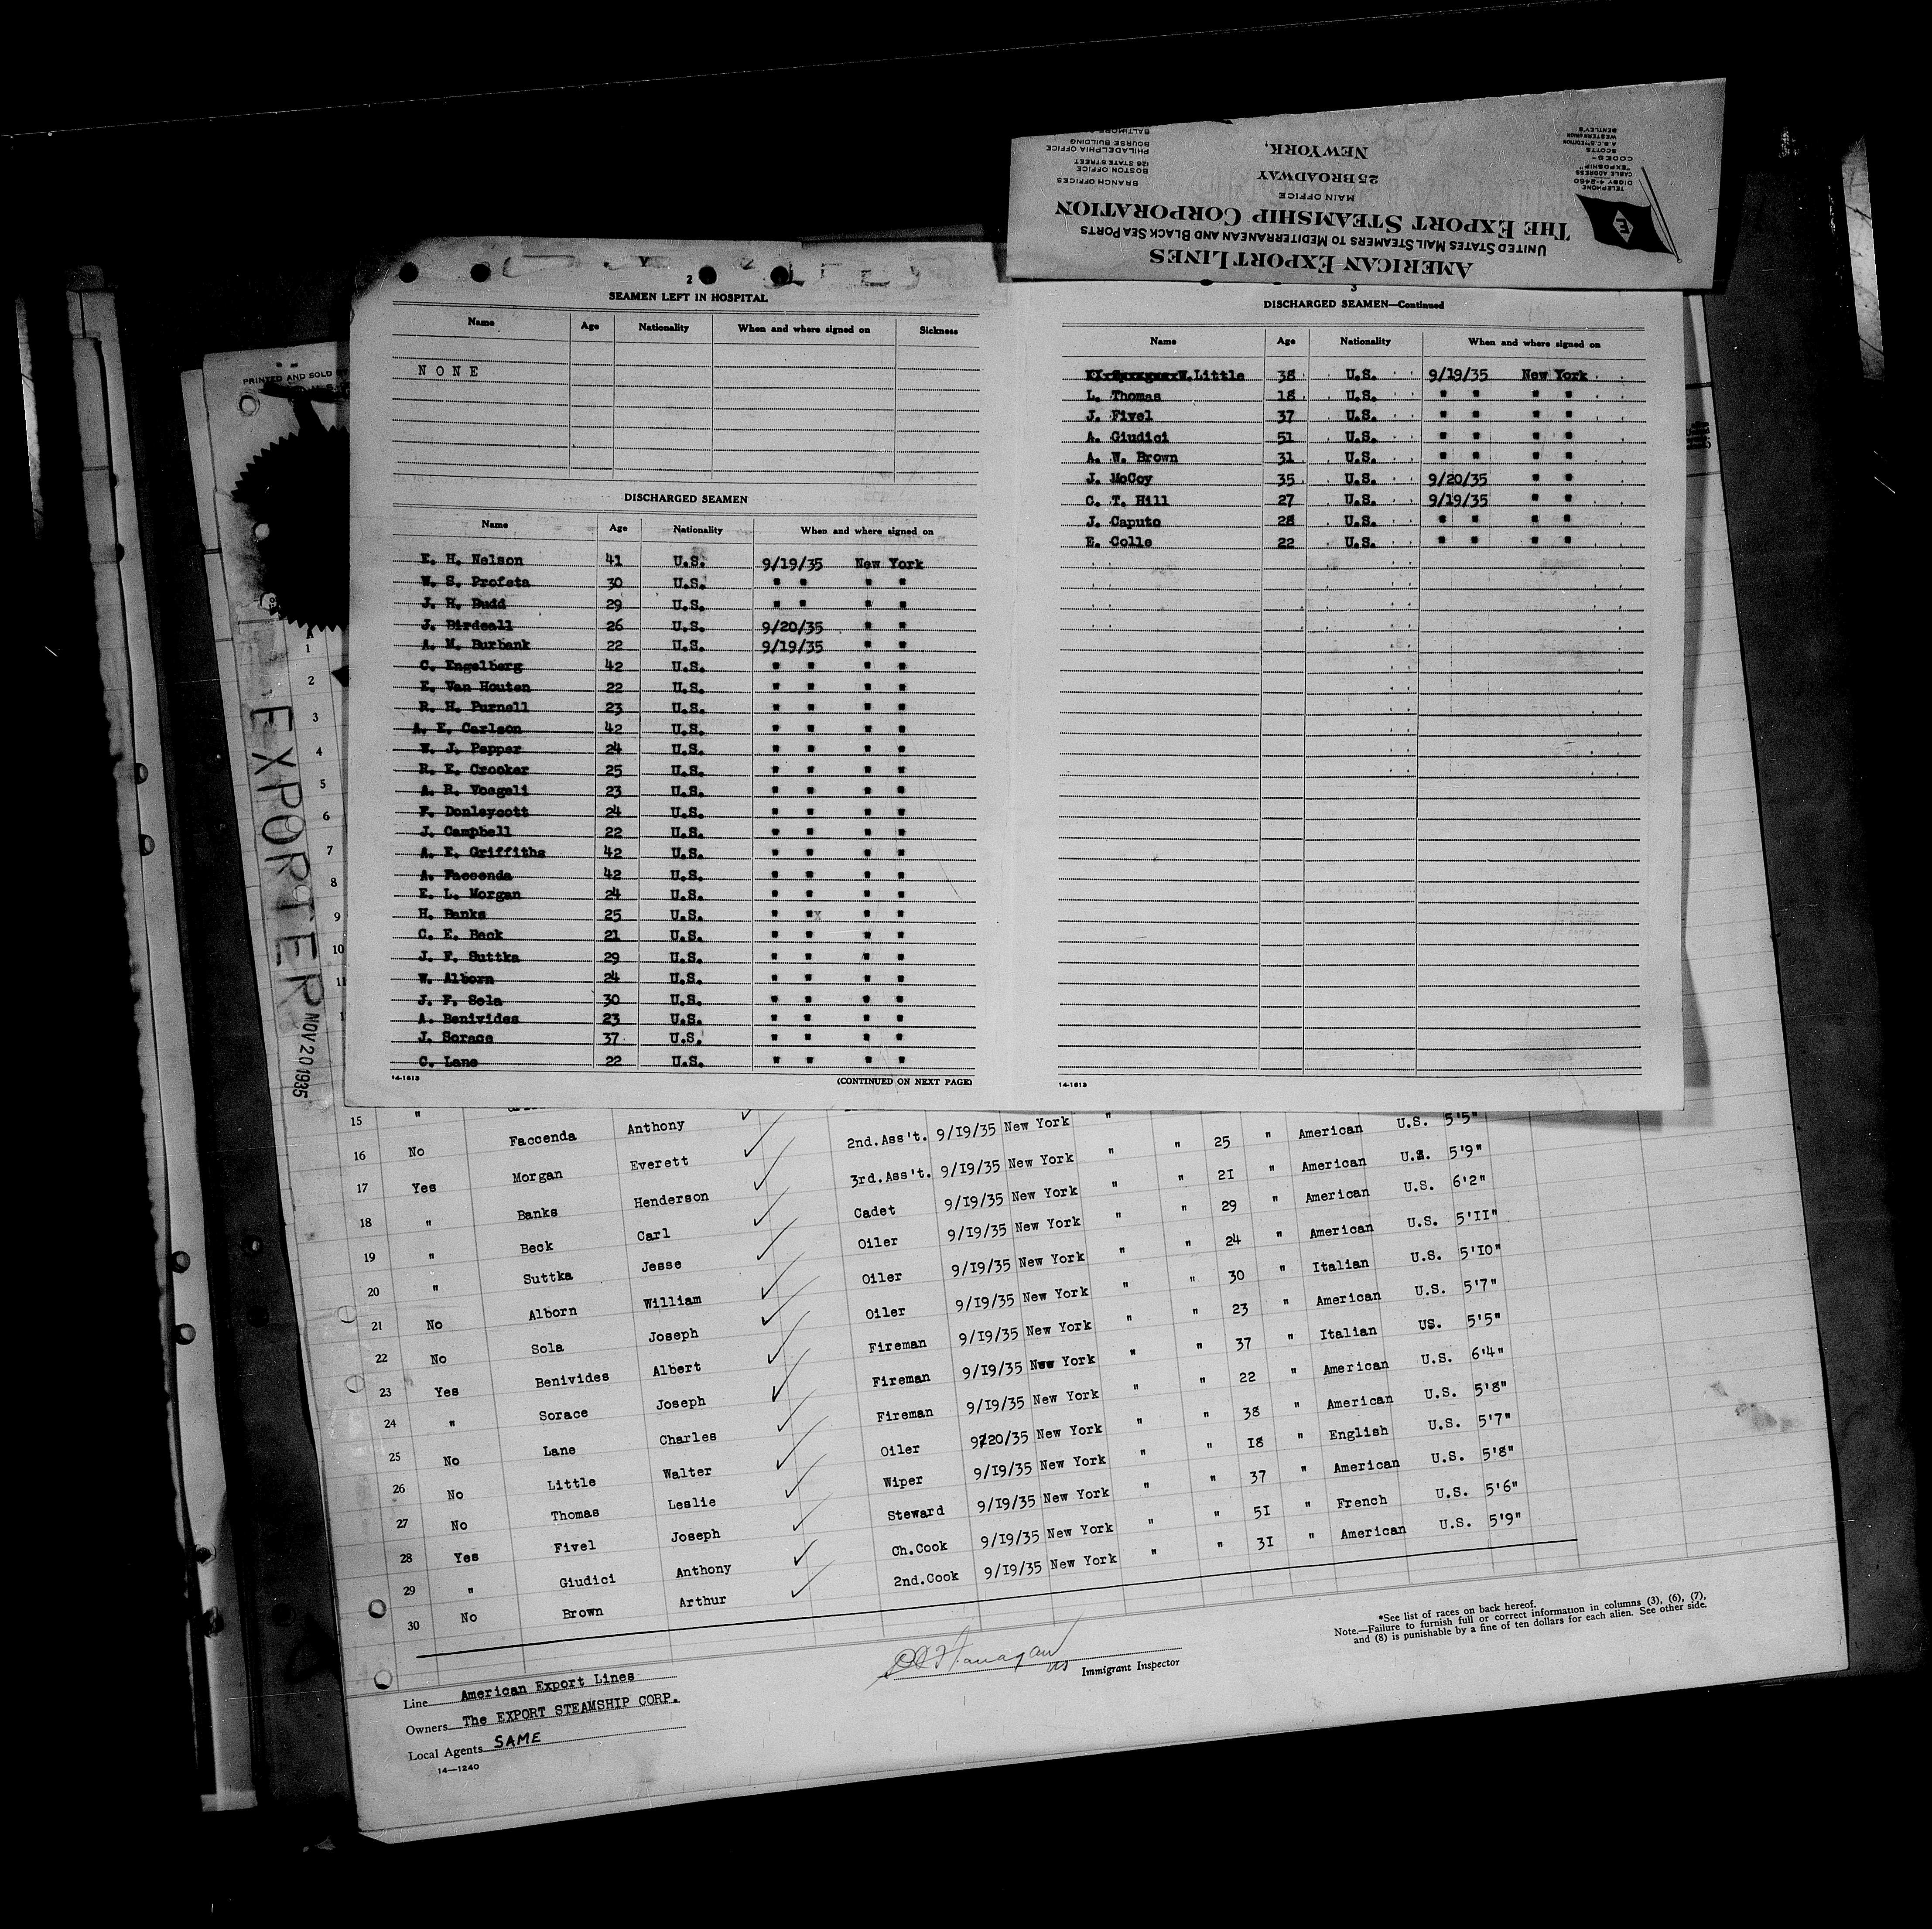 BALTIMORE
BOURSE BUILDING
PHILADELPHIA OFFICE
126 STATE STREET
BOSTON OFFICE
BRANCH OFFICES
NEW YORK,
25 BROADWAY
MAIN OFFICE
THE EXPORT STEAMSHIP CORPORATION
UNITED STATES MAIL STEAMERS TO MEDITERRANEAN AND BLACK SEA PORTS
AMERICAN EXPORT LINES
TELEPHONE
DIGBY 4-2460
CABLE ADDRESS
"EXPOSHIP"
CODES-
SCOTTS
A.B.C. 5TH EDITION
WESTERN UNION
BENTLEY'S
E
2
SEAMEN LEFT IN HOSPITAL
Name Age Nationality When and where signed on Sickness
NONE
DISCHARGED SEAMEN
Name Age Nationality When and where signed on
E. H. Nelson 41 U.S. 9/19/35 New York
W. S. Profeta 30 U.S. " " " "
J. H. Budd 29 U.S. " " " "
J. Birdsall 26 U.S. 9/20/35 " "
A. M. Burbank 22 U.S. 9/19/35 " "
C. Engelberg 42 U.S. " " " "
E. Van Houten 22 U.S. " " " "
R. H. Purnell 23 U.S. " " " "
A. E. Carlson 42 U.S. " " " "
W. J. Pepper 24 U.S. " " " "
R. E. Crocker 25 U.S. " " " "
A. R. Voegeli 23 U.S. " " " "
F. Donleycott 24 U.S. " " " "
J. Campbell 22 U.S. " " " "
A. E. Griffiths 42 U.S. " " " "
A. Faccenda 42 U.S. " " " "
E. L. Morgan 24 U.S. " " " "
H. Banks 25 U.S. " "x " "
C. E. Beck 21 U.S. " " " "
J. F. Suttka 29 U.S. " " " "
W. Alborn 24 U.S. " " " "
J. F. Sola 30 U.S. " " " "
A. Benivides 23 U.S. " " " "
J. Sorace 37 U.S. " " " "
C. Lane 22 U.S. " " " "
14-1613 (CONTINUED ON NEXT PAGE)
3
DISCHARGED SEAMEN—Continued
Name Age Nationality When and where signed on
W.Little 38 U.S. 9/19/35 New York
L. Thomas 18 U.S. " " " "
J. Fivel 37 U.S. " " " "
A. Giudici 51 U.S. " " " "
A. W. Brown 31 U.S. " " " "
J. McCoy 35 U.S. 9/20/35 " "
C. T. Hill 27 U.S. 9/19/35 " "
J. Caputo 28 U.S. " " " "
E. Colle 22 U.S. " " " "
14-1613
PRINTED AND SOLD
EXPORTER
NOV 20 1935
1
2
3
4
5
6
7
8
9
10
11
15 " Anthony 2nd.Ass't. 9/19/35 New York " U.S. 5'5"
16 No Faccenda Everett 3rd.Ass't. 9/19/35 New York " " 25 " American U.S. 5'9"
17 Yes Morgan Henderson Cadet 9/19/35 New York " " 21 " American U.S. 6'2"
18 " Banks Carl Oiler 9/19/35 New York " " 29 " American U.S. 5'11"
19 " Beck Jesse Oiler 9/19/35 New York " " 24 " American U.S. 5'10"
20 " Suttka William Oiler 9/19/35 New York " " 30 " Italian U.S. 5'7"
21 No Alborn Joseph Fireman 9/19/35 New York " " 23 " American US. 5'5"
22 No Sola Albert Fireman 9/19/35 New York " " 37 " Italian U.S. 6'4"
23 Yes Benivides Joseph Fireman 9/19/35 New York " " 22 " American U.S. 5'8"
24 " Sorace Charles Oiler 9/20/35 New York " " 38 " American U.S. 5'7"
25 No Lane Walter Wiper 9/19/35 New York " " 18 " English U.S. 5'8"
26 No Little Leslie Steward 9/19/35 New York " " 37 " American U.S. 5'6"
27 No Thomas Joseph Ch.Cook 9/19/35 New York " " 51 " French U.S. 5'9"
28 Yes Fivel Anthony 2nd.Cook 9/19/35 New York " " 31 " American
29 " Giudici Arthur
30 No Brown
*See list of races on back hereof.
Note.—Failure to furnish full or correct information in columns (3), (6), (7),
and (8) is punishable by a fine of ten dollars for each alien. See other side.
Immigrant Inspector
Line American Export Lines
Owners The EXPORT STEAMSHIP CORP.
Local Agents SAME
14—1240